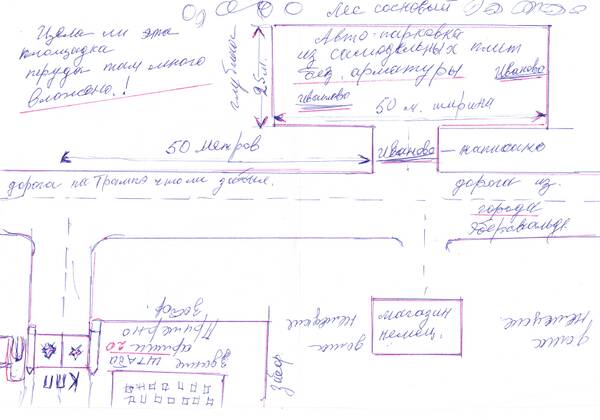 Лес сосновый
Цела ли эта
площадка
труда там много
вложено.!
глубина
25 м.
Авто-парковка
из самодельных плит
без арматуры
Иваново
Иваново
50 м. ширина
50 метров
Иваново
написано
дорога на Трампэ что ли забыл.
дорога из.
города
Эберсвальд.
КПП
здание ШТАБА
армии 20
Примерно
забор.
забор
дома
немецкие
магазин
немец.
дома
немецкие